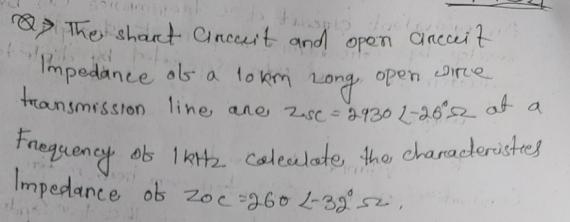 Q⇒ The short Circuit and open circuit
Impedance of a 10km Long open wire
transmission line are Zsc = 2930 ∠-26°Ω at a
Frequency of 1kHz calculate the characteristics
Impedance of Zoc = 260 ∠-32° Ω.